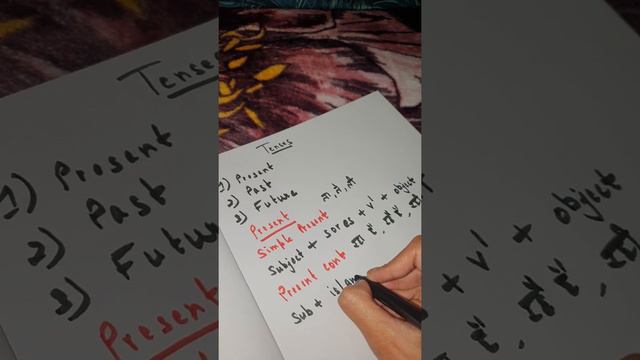 Tenses
1) Present
2) Past
3) Future
Present
Simple Present
Subject + s or es + V' + object
Present cont
Sub + is/am